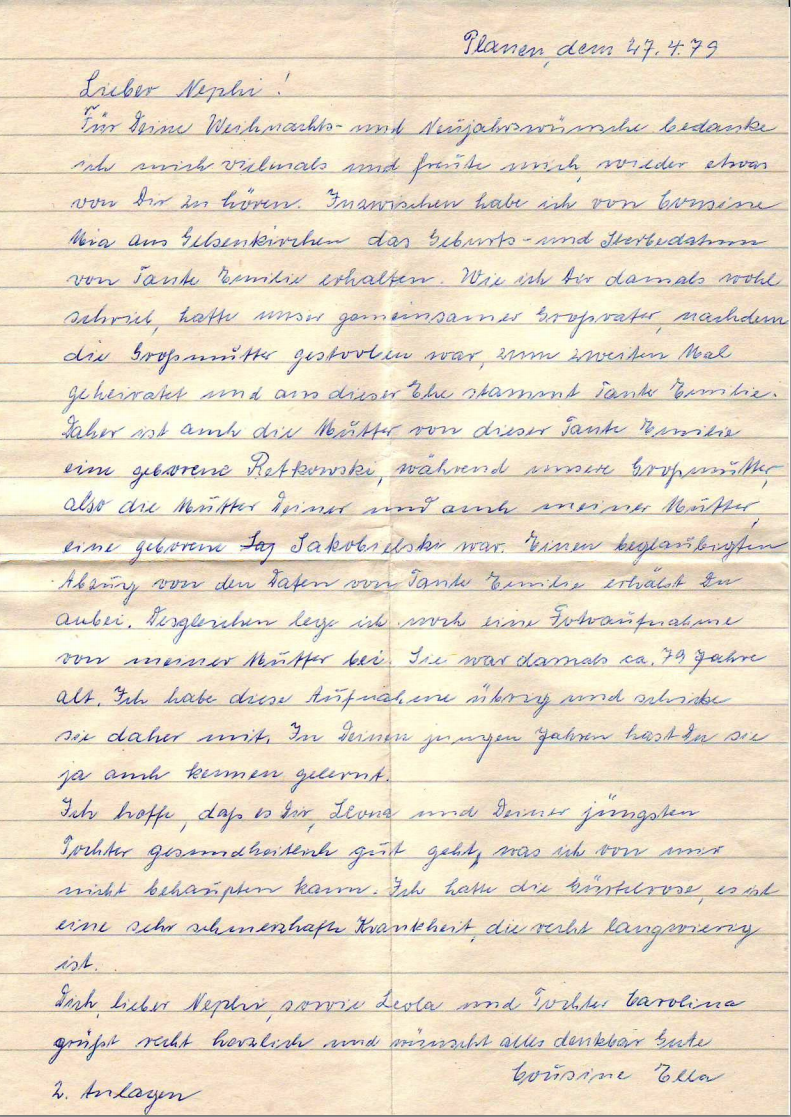 Plauen, dem 27.4.79
Lieber Nephi!
Für Deine Weihnachts- und Neujahrswünsche bedanke
ich mich vielmals und freute mich, wieder etwas
von Dir zu hören. Inzwischen habe ich von Cousine
Mia aus Gelsenkirchen das Geburts- und Sterbedatum
von Tante Emilie erhalten. Wie ich Dir damals wohl
schrieb, hatte unser gemeinsamer Großvater, nachdem
die Großmutter gestorben war, zum zweiten Mal
geheiratet und aus dieser Ehe stammt Tante Emilie.
Daher ist auch die Mutter von dieser Tante Emilie
eine geborene Retkowski, während unsere Großmutter,
also die Mutter Deiner und auch meiner Mutter,
eine geborene Jakobielski war. Einen beglaubigten
Abzug von den Daten von Tante Emilie erhälst Du
anbei. Desgleichen lege ich noch eine Fotoaufnahme
von meiner Mutter bei. Sie war damals ca. 79 Jahre
alt. Ich habe diese Aufnahme übrig und schicke
sie daher mit. In Deinen jungen Jahren hast Du sie
ja auch kennen gelernt.
Ich hoffe, daß es Dir, Leona und Deiner jüngsten
Tochter gesundheitlich gut geht, was ich von mir
nicht behaupten kann. Ich hatte die Gürtelrose, es ist
eine sehr schmerzhafte Krankheit, die recht langwierig
ist.
Dich, lieber Nephi, sowie Leola und Tochter Carolina
grüßt recht herzlich und wünscht alles denkbar Gute
Cousine Ella
2. Anlagen